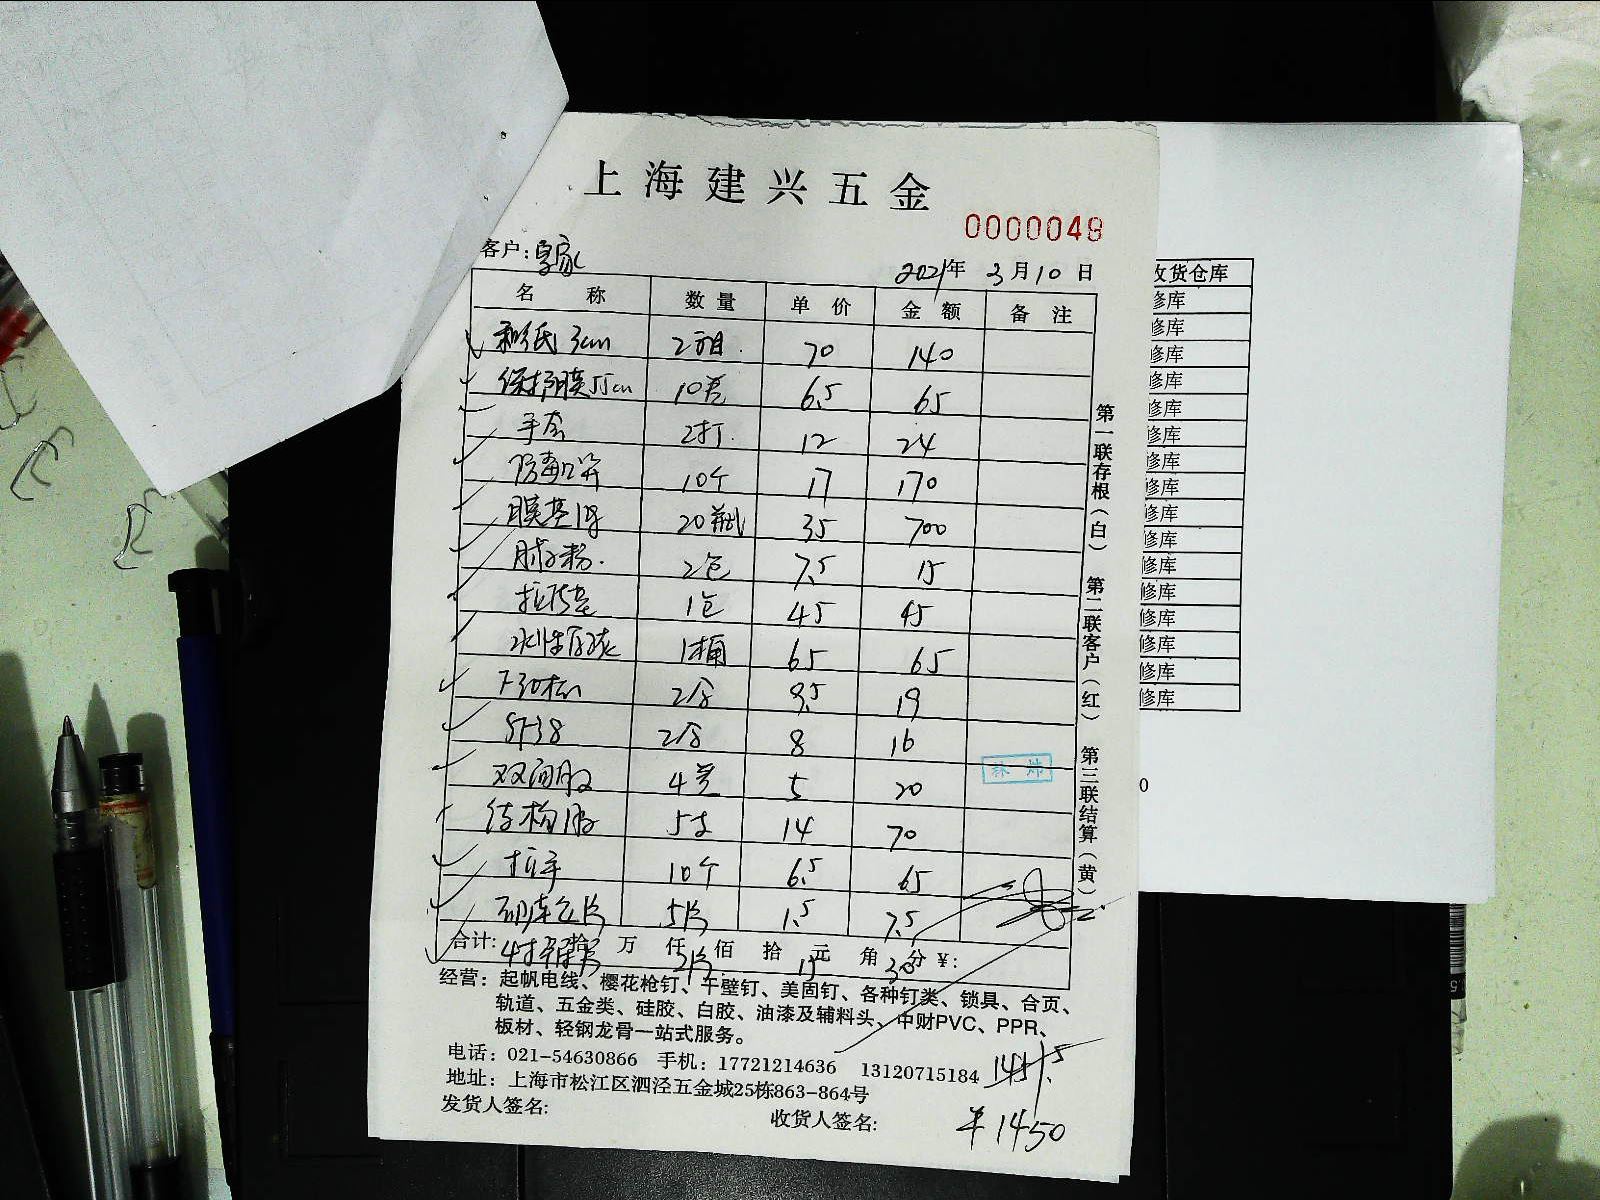 上海建兴五金
0000049
客户: 皇家
2021年 3月10日
名称 数量 单价 金额 备注
和纸 3cm 2组 70 140
保护膜55cm 10卷 6.5 65
手套 2打 12 24
防毒口罩 10个 17 170
膜基膏 20瓶 35 700
腻子粉 2包 7.5 15
1包 45 45
水性 1桶 65 65
F30枪 2盒 9.5 19
ST38 2盒 8 16
双面胶 4卷 5 20
结构胶 5支 14 70
拉手 10个 6.5 65
5片 1.5 7.5
合计: 拾 万 仟 佰 拾 元 角 分 ¥:
4寸 2片 15 30
经营: 起帆电线、樱花枪钉、午壁钉、美固钉、各种钉类、锁具、合页、
轨道、五金类、硅胶、白胶、油漆及辅料头、中财PVC、PPR、
板材、轻钢龙骨一站式服务。
电话: 021-54630866 手机: 17721214636 13120715184
1451.5
地址: 上海市松江区泗泾五金城25栋863-864号
发货人签名: 收货人签名:
¥1450
第一联存根(白) 第二联客户(红) 第三联结算(黄)
收货仓库
修库
修库
修库
修库
修库
修库
修库
修库
修库
修库
修库
修库
修库
修库
修库
修库
0